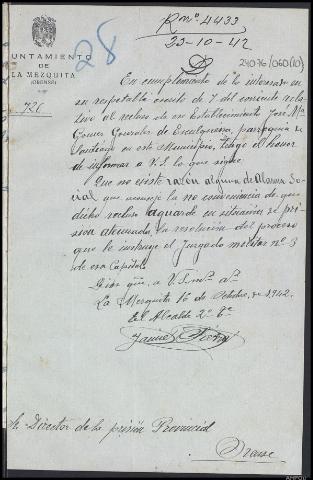 R nº 4433
23-10-42
28
24076/060(10)
AYUNTAMIENTO
DE
LA MEZQUITA
(ORENSE)
726
En cumplimiento de lo interesado en
su respetable escrito de 7 del corriente rela-
tivo al recluso de ese Establecimiento José Mª
Gomez Gonzalez de Esculqueira, parroquia de
Santiago en este Municipio, tengo el honor
de informar a V.S. lo que sigue.
Que no existe razón alguna de Alarma So-
cial que aconseje la no conveniencia de que
dicho recluso aguarde en situación de pri-
sion atenuada, la resolución del proceso
que le instruye el Juzgado militar nº 3
de esa Capital.
Dios gue. a V.S. ms. as.
La Mezquita 16 de Octubre, de 1942.
El Alcalde 2º Tte
Jaime
Sr. Director de la prisión Provincial
Orense
AHPOU